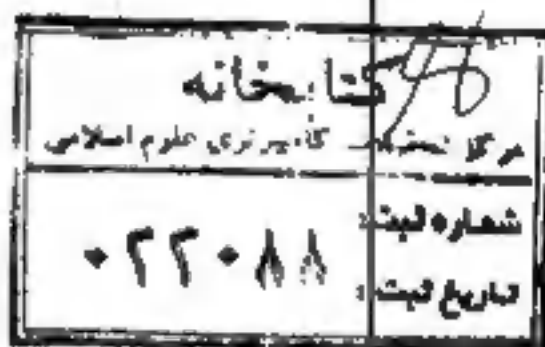 کتابخانه
مرکز تحقیقات کامپیوتری علوم اسلامی
شماره ثبت: ۰۲۲۰۸۸
تاریخ ثبت: